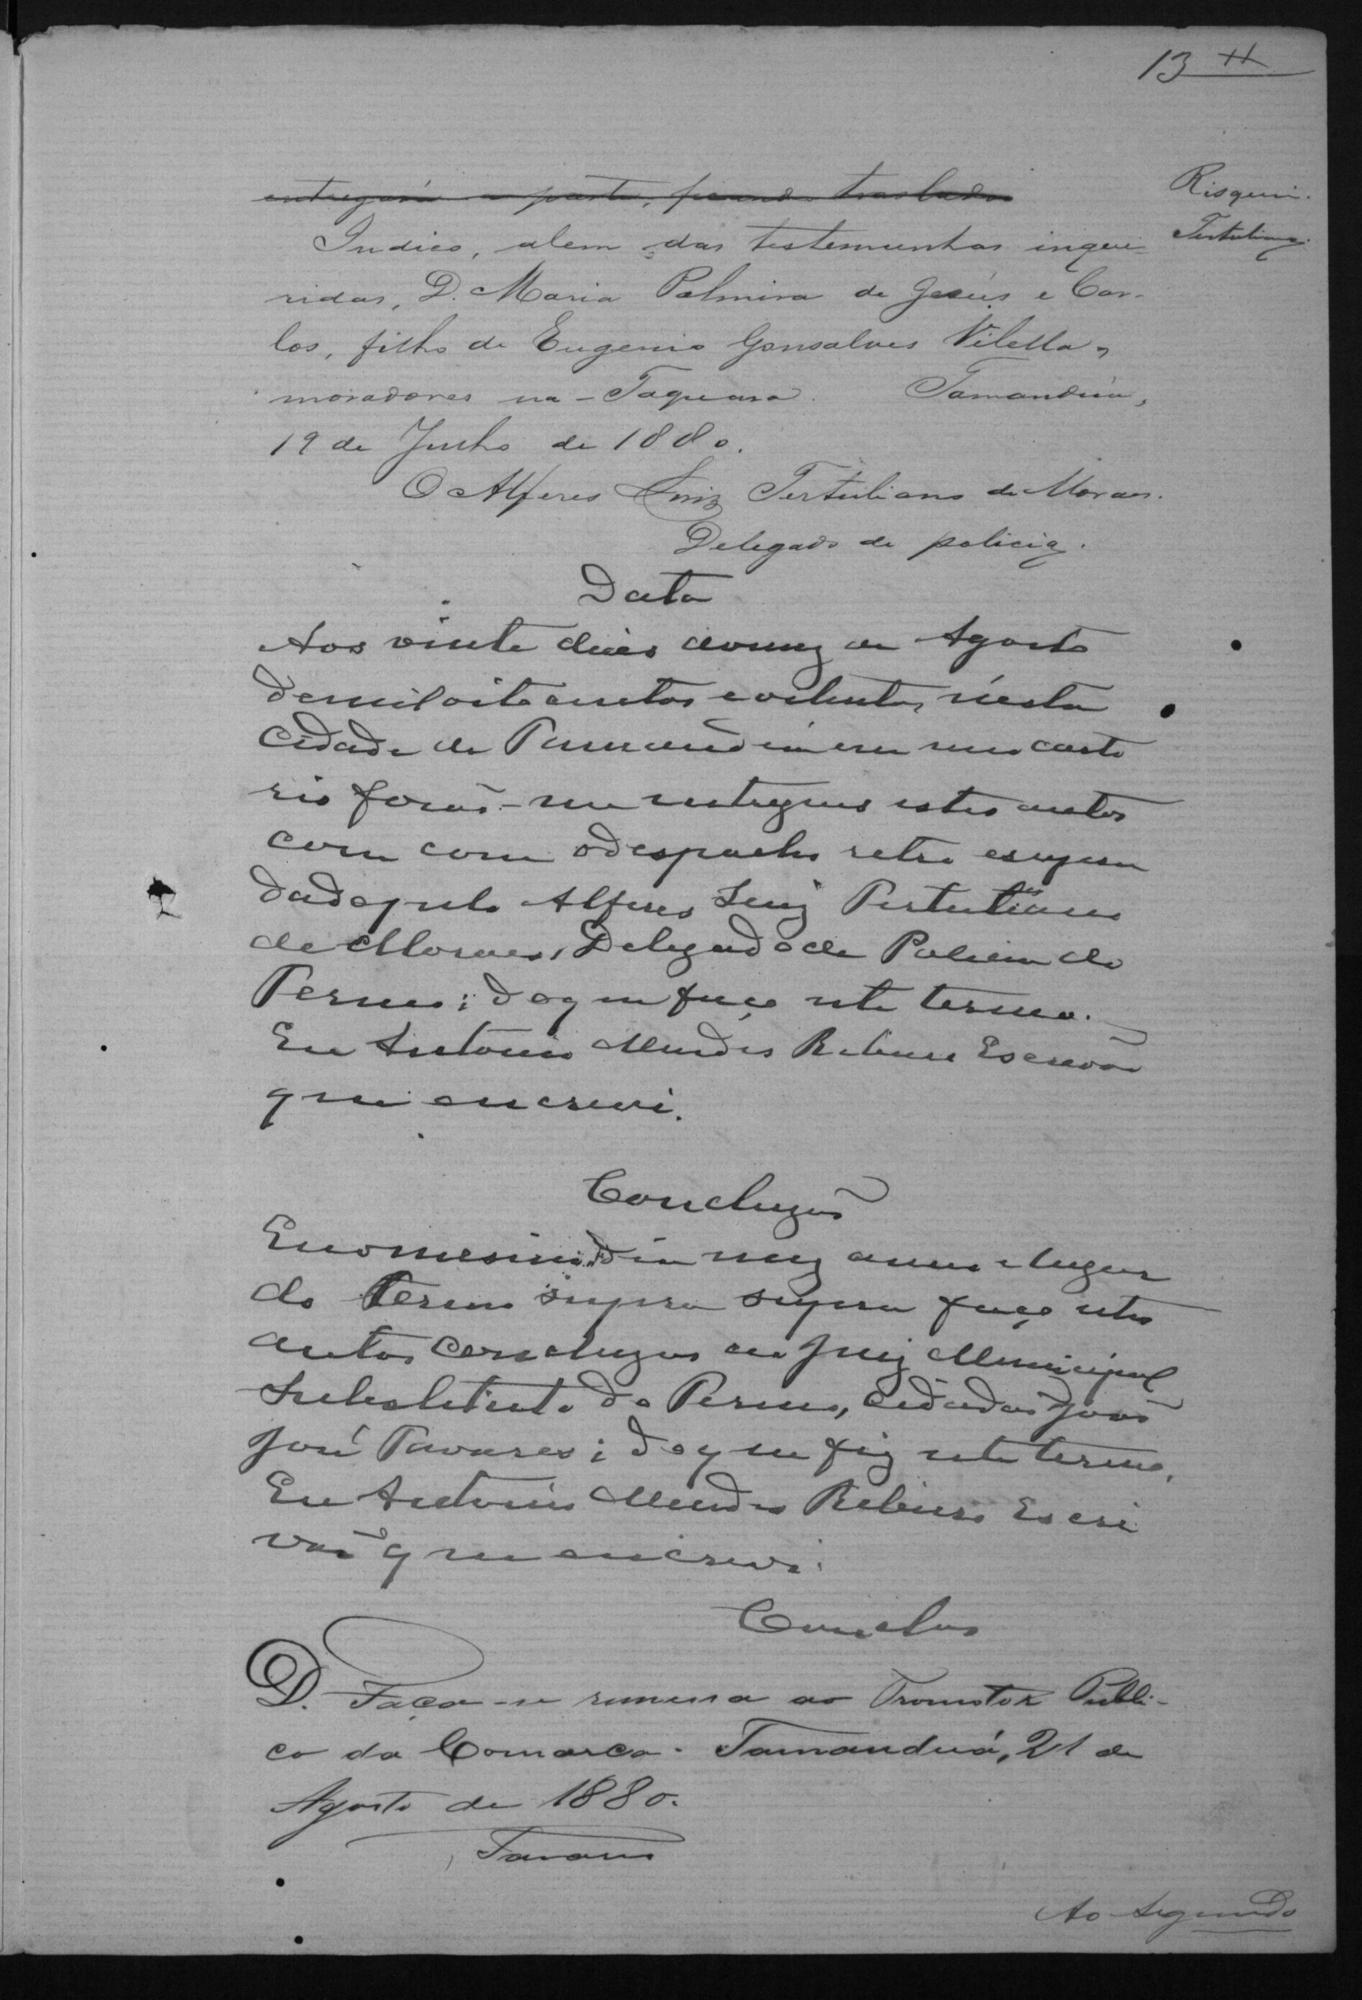 13
entregará a parte, ficando traslado
Risquei.
Tertuliano.
Indico, alem das testemunhas inque-
ridas, D. Maria Palmira de Jesus e Car-
los, filho de Eugenio Gonsalves Vilella,
moradores na - Taquara. Tamanduá,
19 de Julho de 1880.
O Alferes Luiz Tertuliano de Moraes.
Delegado de policia.
Data
Aos vinte dias do mez de Agosto
de mil oito centos e oitenta, n'esta
Cidade de Tamanduá em meu carto
rio forão-me entregues estes autos
com com o despacho retro e supra
dado pelo Alferes Luiz Tertuliano
de Moraes, Delegado de Policia do
Termo; do que faço este termo.
Eu Antonio Mendes Ribeiro Escrivão
que escrevi.
Concluzão
E no mesmo dia mez anno e lugar
do Termo supra supra faço estes
autos concluzos ao Juiz Municipal
Substituto do Termo, Cidadão João
José Tavares; do que fiz este termo.
Eu Antonio Mendes Ribeiro Escri
vão que escrevi.
Conclus
D. Faça-se remessa ao Promotor Publi-
co da Comarca. Tamanduá, 21 de
Agosto de 1880.
Tavares
Ao Segundo